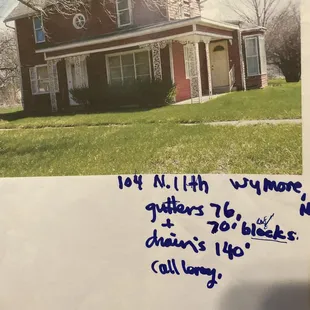 104 N. 11th Wymore,
gutters 76,
+ 70' w/ blocks.
drain's 140'
Call